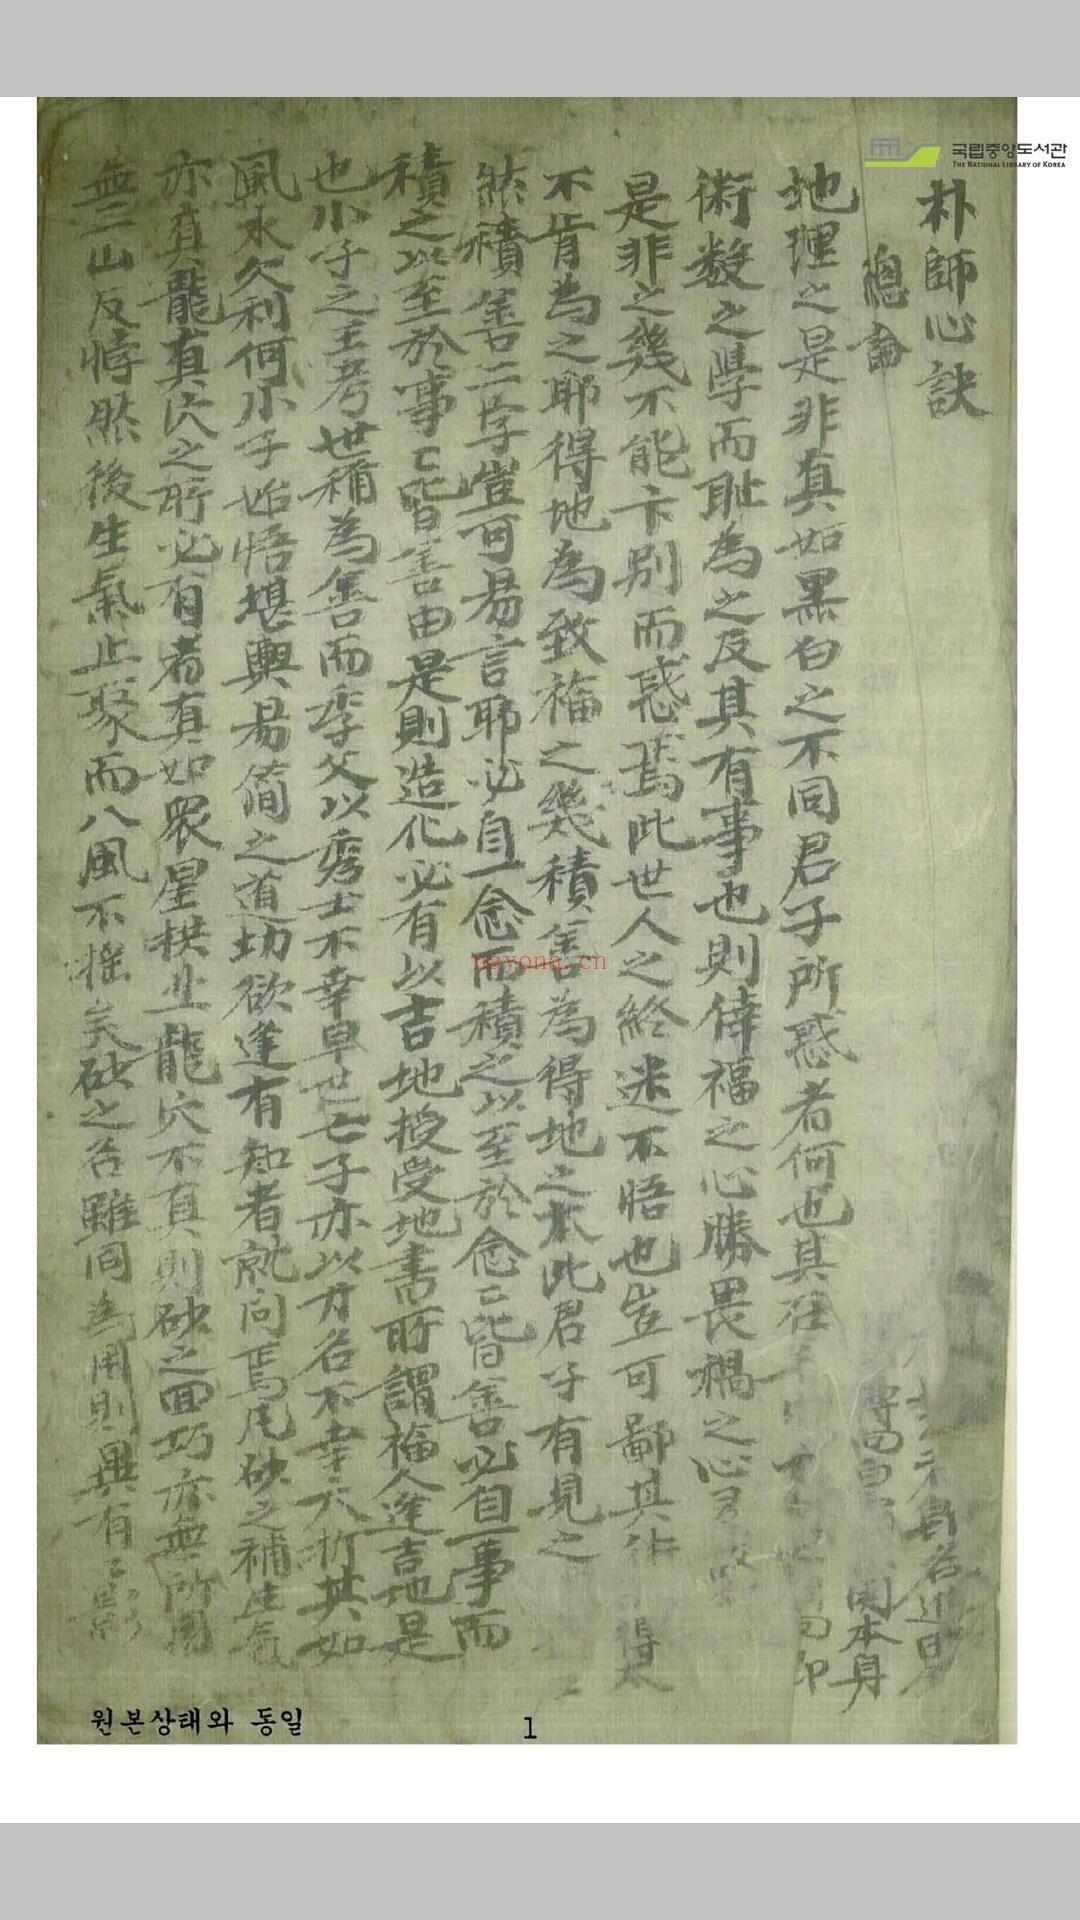 국립중앙도서관
THE NATIONAL LIBRARY OF KOREA
朴師心訣
總論
地理之是非真如黑白之不同君子所惑者何也其在
術數之學而恥為之及其有事也則倖福之心勝畏禍之心
是非之幾不能卞别而惑焉此世人之終迷不悟也豈可鄙其術
不肯為之耶得地為致福之幾積善為得地之本此君子有見之
然積善二字豈可易言耶必自一念而積之以至於念〻皆善必自一事而
積之以至於事〻皆善由是則造化必有以吉地授受地書所謂福人逢吉地是
也小子之王考世稱為善而季父以秀士不幸早世亡子亦以才名不幸夭折其如
風水欠利何小子始悟堪輿易簡之道切欲逢有知者就问焉凡砂之補
亦真龍真穴之所必有者真如衆星拱北龍穴不真則砂之回巧亦無所用
無二山反悖然後生氣止聚而八風不搖矣砂之名雖同為用則異有〻
関本身
nayona.cn
원본상태와 동일
1